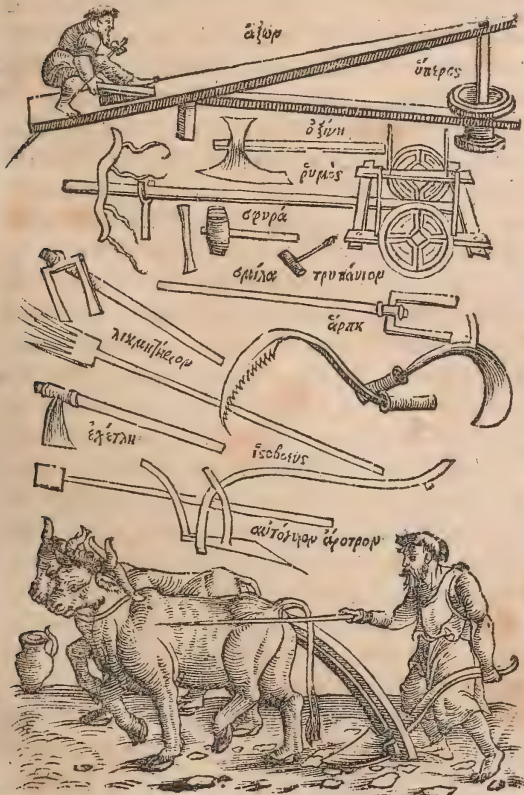 ἄξωρ
ὕπερος
ὀξίνη
ῥυμὸς
σφυρά
σμίλα τρυπάνιον
ἅρπη
λικμητήριον
ἐχέτλη
ἱστοβοεύς
αὐτόγυον ἄροτρον